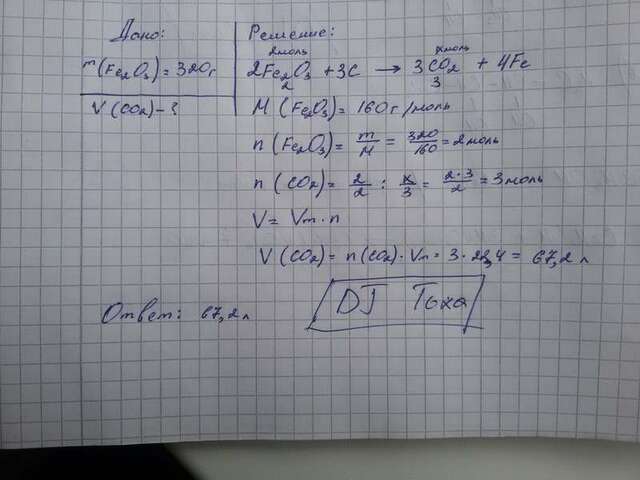 Дано:
m(Fe₂O₃) = 320г
V(CO₂) - ?
Решение:
2моль xмоль
2Fe₂O₃ + 3C → 3CO₂ + 4Fe
2 3
M(Fe₂O₃) = 160г/моль
n(Fe₂O₃) = m/M = 320/160 = 2моль
n(CO₂) = 2/2 : x/3 = 2·3/2 = 3моль
V = Vm·n
V(CO₂) = n(CO₂)·Vm = 3·22,4 = 67,2л
Ответ: 67,2л
DJ Тоха